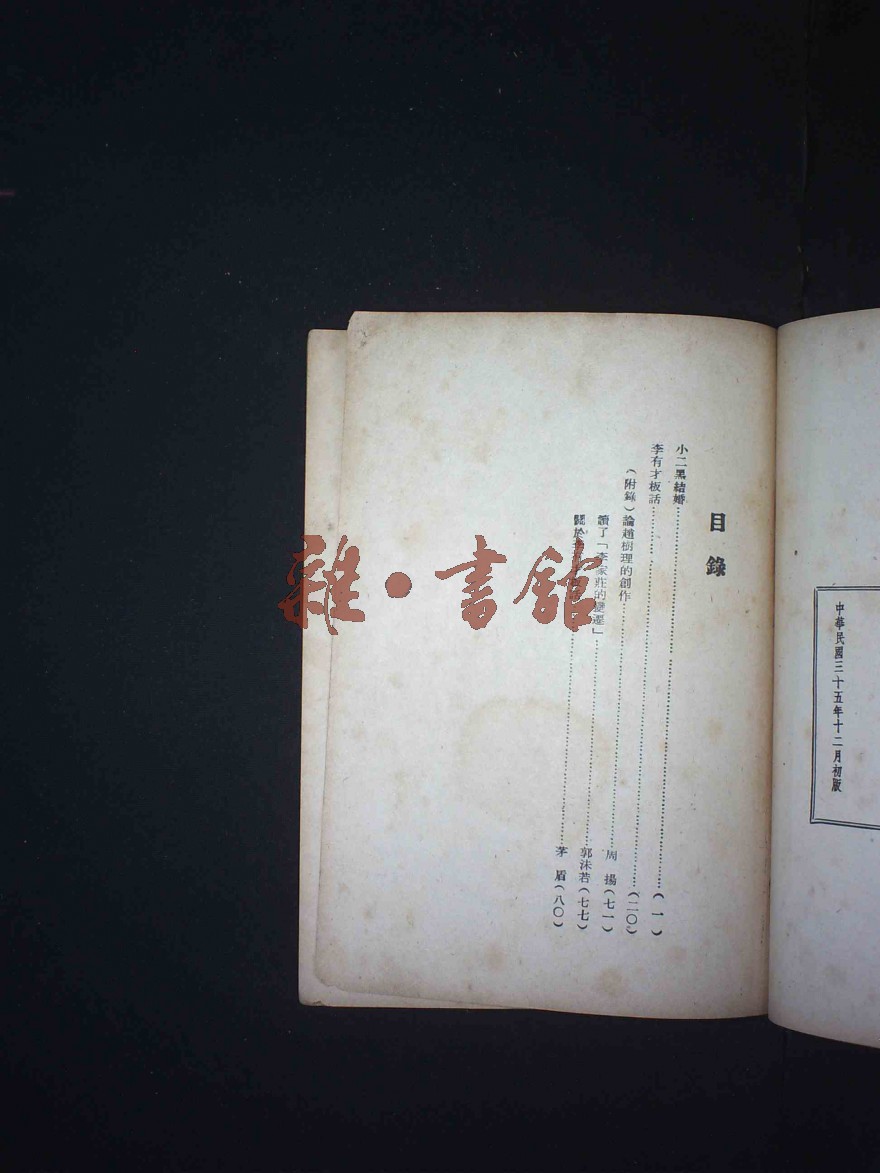 中華民國三十五年十二月初版
目錄
小二黑結婚……(一)
李有才板話……(二〇)
(附錄)論趙樹理的創作……周揚(七一)
讀了「李家莊的變遷」……郭沫若(七七)
關於……茅盾(八〇)
雜·書館